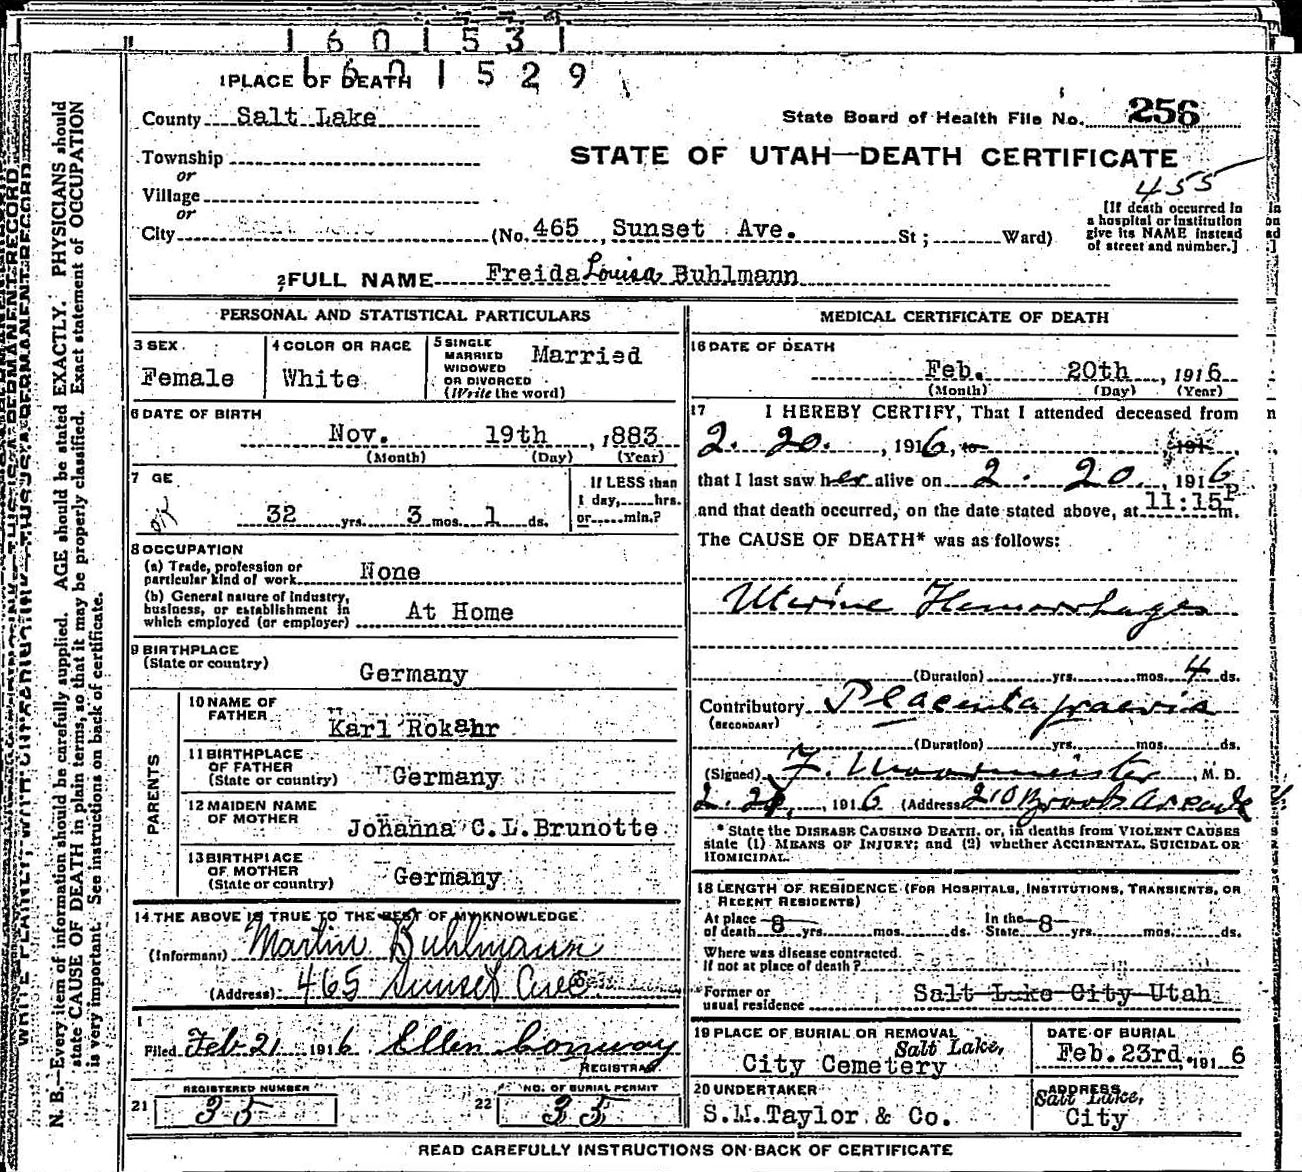 1601531
1601529
1 PLACE OF DEATH
County Salt Lake
State Board of Health File No. 256
Township
or
Village
or
City
STATE OF UTAH—DEATH CERTIFICATE
455
(No. 465, Sunset Ave. St; Ward)
[If death occurred in
a hospital or institution
give its NAME instead
of street and number.]
2 FULL NAME Freida Louisa Buhlmann
PERSONAL AND STATISTICAL PARTICULARS
3 SEX
Female
4 COLOR OR RACE
White
5 SINGLE
MARRIED
WIDOWED
OR DIVORCED
(Write the word)
Married
6 DATE OF BIRTH
Nov. 19th, 1883
(Month) (Day) (Year)
7 GE
32 yrs. 3 mos. 1 ds.
If LESS than
1 day, hrs.
or min.?
8 OCCUPATION
(a) Trade, profession or
particular kind of work None
(b) General nature of industry,
business, or establishment in
which employed (or employer) At Home
9 BIRTHPLACE
(State or country)
Germany
PARENTS
10 NAME OF
FATHER
Karl Rokahr
11 BIRTHPLACE
OF FATHER
(State or country) Germany
12 MAIDEN NAME
OF MOTHER
Johanna C.L.Brunotte
13 BIRTHPLACE
OF MOTHER
(State or country) Germany
14 THE ABOVE IS TRUE TO THE BEST OF MY KNOWLEDGE
(Informant) Martin Buhlmann
(Address) 465 Sunset Ave
Filed Feb 21 1916 Ellen Conway
REGISTRAR
REGISTERED NUMBER
21 35
NO. OF BURIAL PERMIT
22 35
MEDICAL CERTIFICATE OF DEATH
16 DATE OF DEATH
Feb. 20th, 1916
(Month) (Day) (Year)
17 I HEREBY CERTIFY, That I attended deceased from
2. 20. , 1916, to 191
that I last saw her alive on 2. 20. , 1916
and that death occurred, on the date stated above, at 11:15 P m.
The CAUSE OF DEATH* was as follows:
Uterine Hemorrhages
(Duration) yrs. mos. 4 ds.
Contributory Placenta praevia
(SECONDARY)
(Duration) yrs. mos. ds.
(Signed) F. , M. D.
2. , 1916 (Address 210 Brooks Arcade
* State the DISEASE CAUSING DEATH, or, in deaths from VIOLENT CAUSES
state (1) MEANS OF INJURY; and (2) whether ACCIDENTAL, SUICIDAL OR
HOMICIDAL.
18 LENGTH OF RESIDENCE (FOR HOSPITALS, INSTITUTIONS, TRANSIENTS, OR
RECENT RESIDENTS)
At place
of death 8 yrs. mos. ds.
In the
State 8 yrs. mos. ds.
Where was disease contracted.
if not at place of death?
Former or
usual residence Salt Lake City Utah
19 PLACE OF BURIAL OR REMOVAL
Salt Lake,
City Cemetery
DATE OF BURIAL
Feb. 23rd, 1916
20 UNDERTAKER
S.M.Taylor & Co.
ADDRESS
Salt Lake,
City
READ CAREFULLY INSTRUCTIONS ON BACK OF CERTIFICATE
WRITE PLAINLY, WITH UNFADING INK—THIS IS A PERMANENT RECORD
N. B.—Every item of information should be carefully supplied. AGE should be stated EXACTLY. PHYSICIANS should
state CAUSE OF DEATH in plain terms, so that it may be properly classified. Exact statement of OCCUPATION
is very important. See instructions on back of certificate.